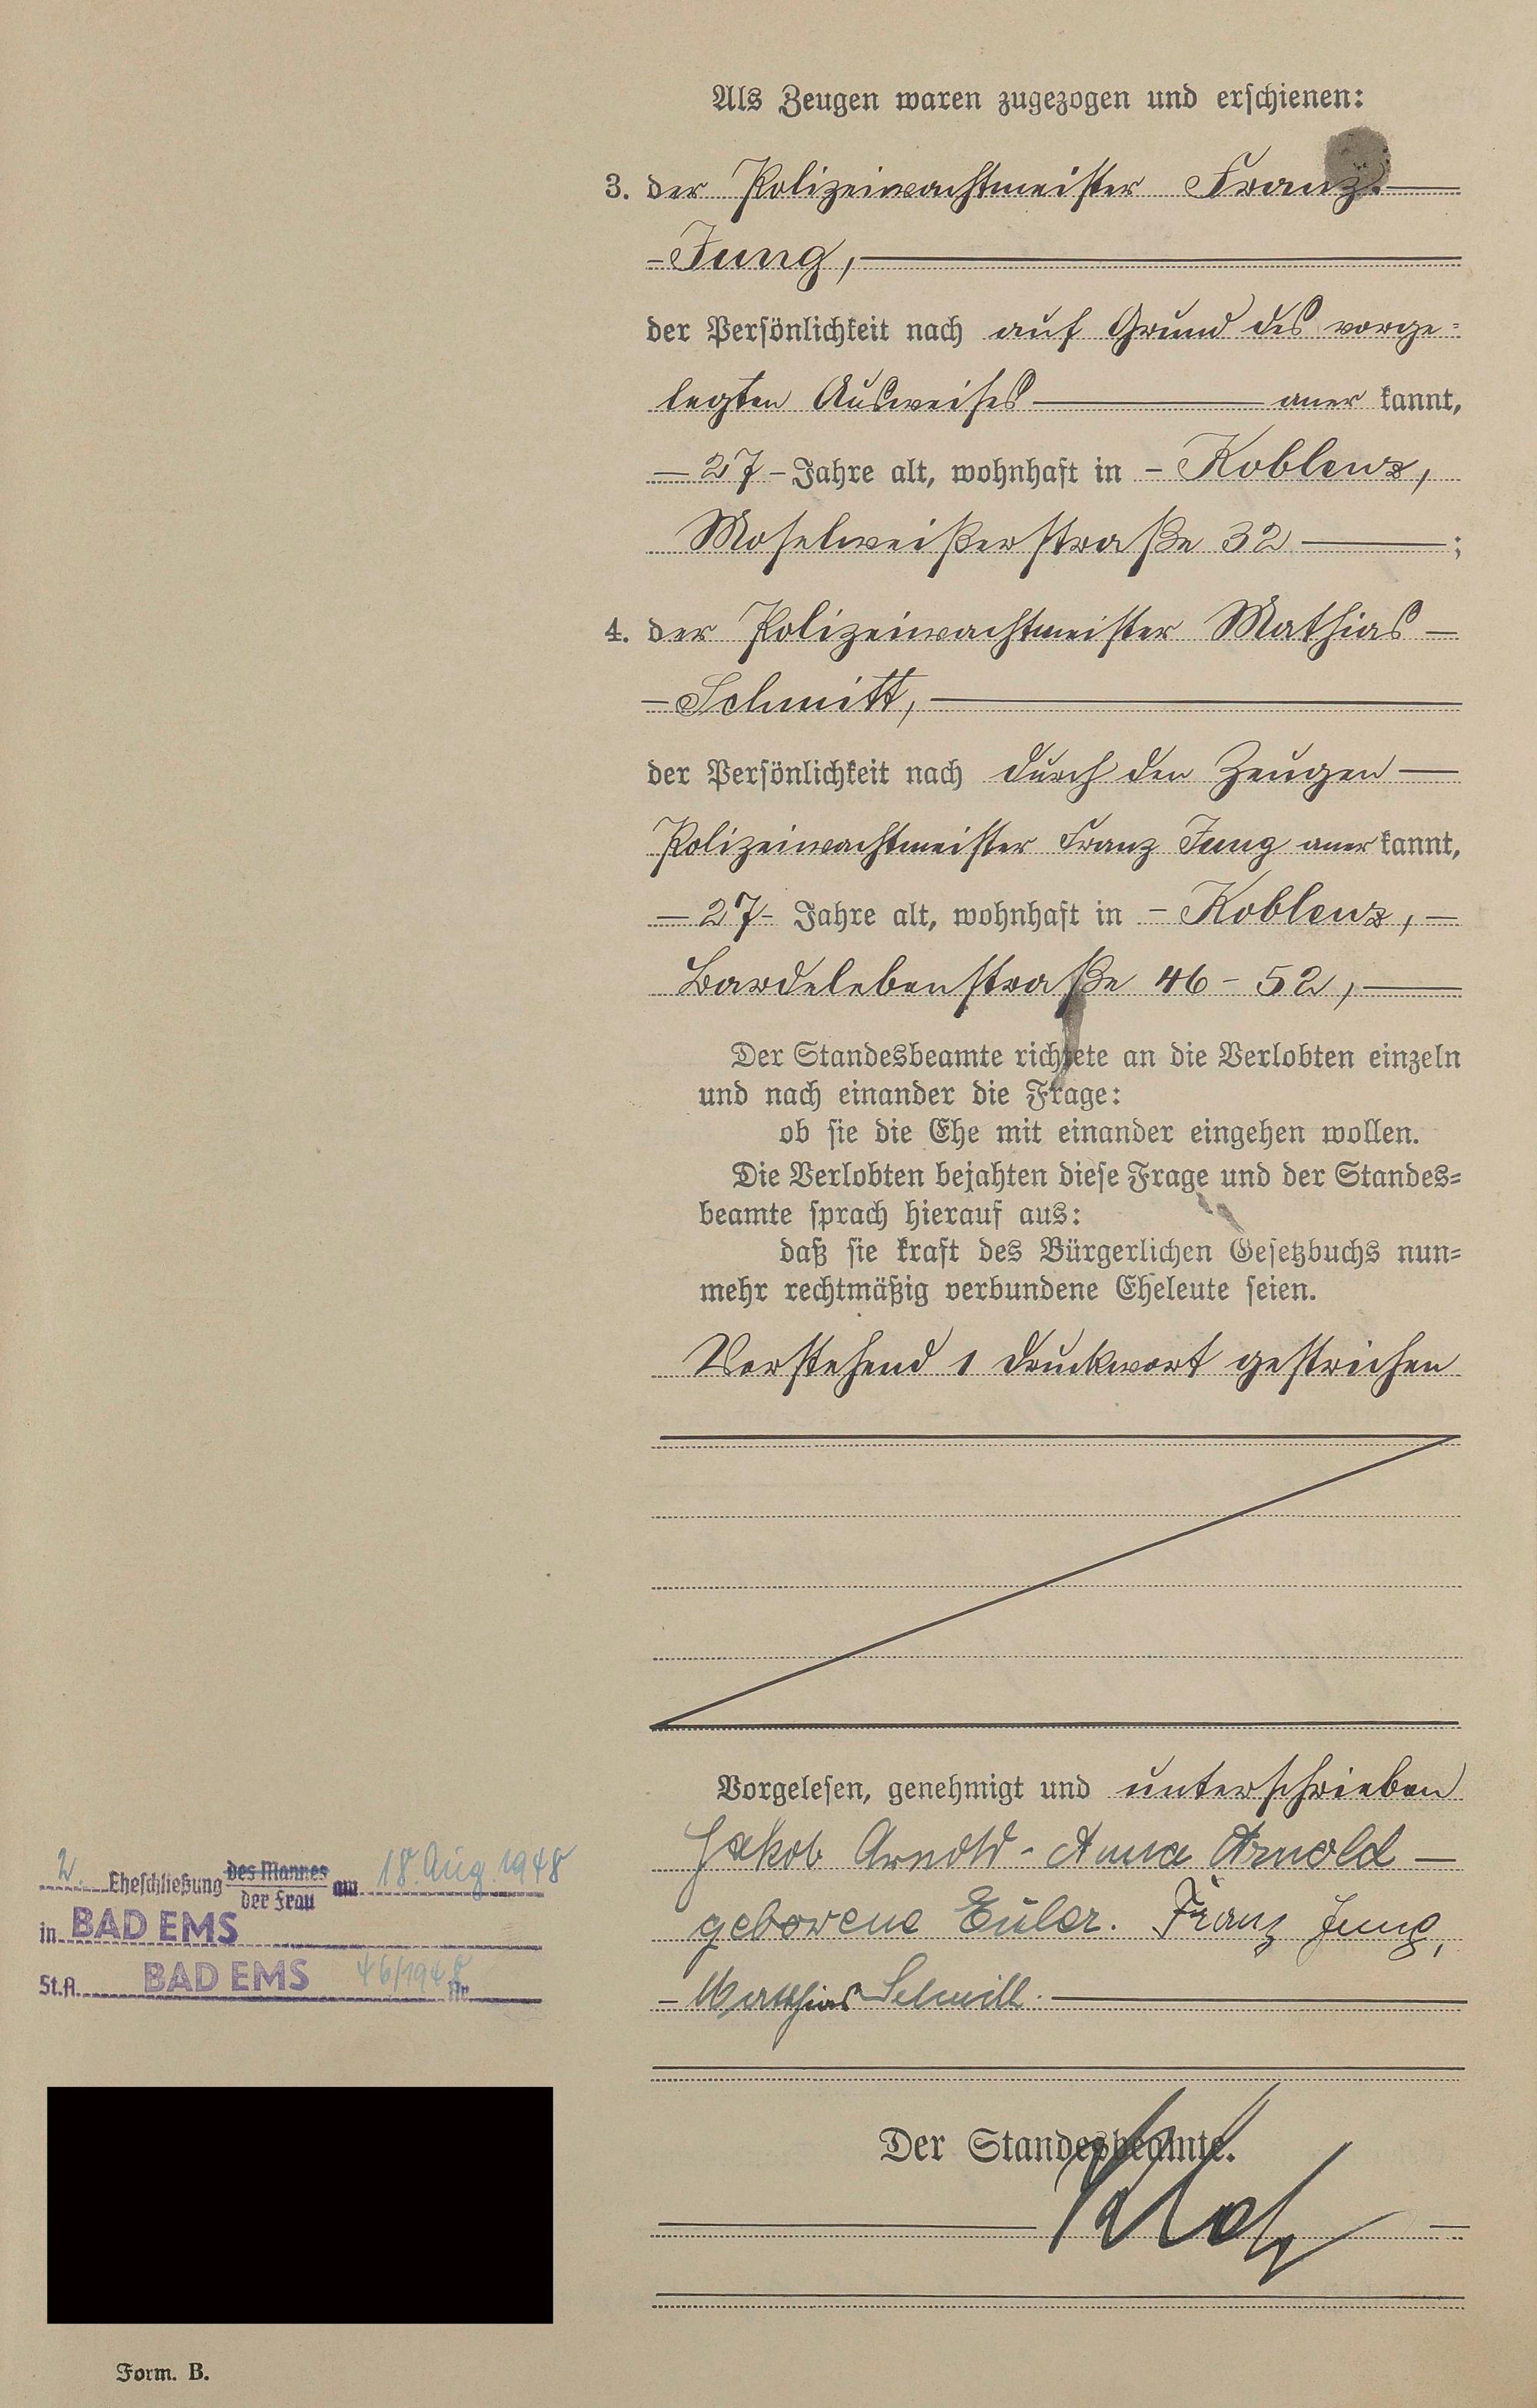 Als Zeugen waren zugezogen und erschienen:
3. der Polizeiwachtmeister Franz
Jung,
der Persönlichkeit nach auf Grund des vorge=
legten Ausweises — aner kannt,
— 27 - Jahre alt, wohnhaft in - Koblenz,
Moselweißerstraße 32 — ;
4. der Polizeiwachtmeister Mathias —
— Schmitt, —
der Persönlichkeit nach durch den Zeugen —
Polizeiwachtmeister Franz Jung aner kannt,
— 27 - Jahre alt, wohnhaft in - Koblenz, —
Bardelebenstraße 46 - 52, —
Der Standesbeamte richtete an die Verlobten einzeln
und nach einander die Frage:
ob sie die Ehe mit einander eingehen wollen.
Die Verlobten bejahten diese Frage und der Standes=
beamte sprach hierauf aus:
daß sie kraft des Bürgerlichen Gesetzbuchs nun=
mehr rechtmäßig verbundene Eheleute seien.
Vorstehend 1 Druckwort gestrichen
Vorgelesen, genehmigt und unterschrieben
Jakob Arnold - Anna Arnold —
geborene Euler. Franz Jung,
- Matthias Schmitt. —
Der Standesbeamte.
2. Eheschließung des Mannes am 18. Aug. 1948
der Frau
in BAD EMS
St.A. BAD EMS 46/1948 Nr.
Form. B.